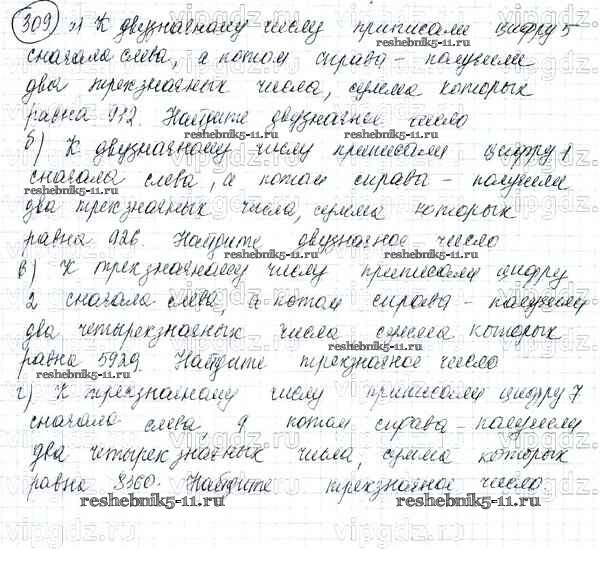 309 а) К двузначному числу приписали цифру 5
сначала слева, а потом справа – получили
два трехзначных числа, сумма которых
равна 912. Найдите двузначное число
reshebnik5-11.ru reshebnik5-11.ru
б) К двузначному числу приписали цифру 1
сначала слева, а потом справа – получили
reshebnik5-11.ru
два трехзначных числа, сумма которых
reshebnik5-11.ru
равна 926. Найдите двузначное число
в) К трехзначному числу приписали цифру
2 сначала слева, а потом справа – получили
два четырехзначных числа сумма которых
reshebnik5-11.ru
равна 5929. Найдите трехзначное число
г) К трехзначному числу приписали цифру 7
сначала слева, а потом справа – получили
два четырехзначных числа, сумма которых
равна 8360. Найдите трехзначное число.
reshebnik5-11.ru reshebnik5-11.ru
vipgdz.ru